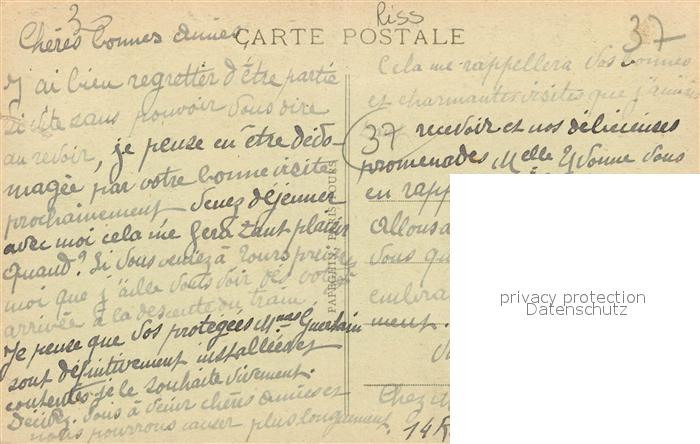 3
Riss
37
CARTE POSTALE
Chères bonnes amies
J'ai bien regretter d'être partie
si vite sans pouvoir vous dire
au revoir, je pense en être dédo-
magée par votre bonne visite
prochainement venez déjeuner
avec moi cela me fera tant plaisir
Quand? Si vous veniez à Tours
moi que j'aille vous voir dès votre
arrivée à la descente du train.
Je pense que vos protégées Mmes
sont définitivement installées et
contentes je le souhaite vivement.
Décidez-vous à venir chères amies et
nous pourrons causer plus longuement.
PAPEGHIN, PARIS-TOURS
Cela me rappellera vos bonnes
et charmantes visites que j'aimais
37
recevoir et nos délicieuses
promenades Melle Yvonne vous
en rapp
allons a
vous qu
embra
ment.
Chez
14 R
privacy protection
Datenschutz